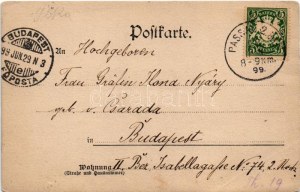 Postkarte.
BUDAPEST
99 JUN. 29 N 3
POSTA
PASS
8-9 Vm.
99.
An Hochgeboren
Frau Gräfin Ilona Nyáry
geb. v. Csarada
in Budapest
Wohnung II. Bez. Isabellagasse No 74. 2. Stock
(Straße und Hausnummer)